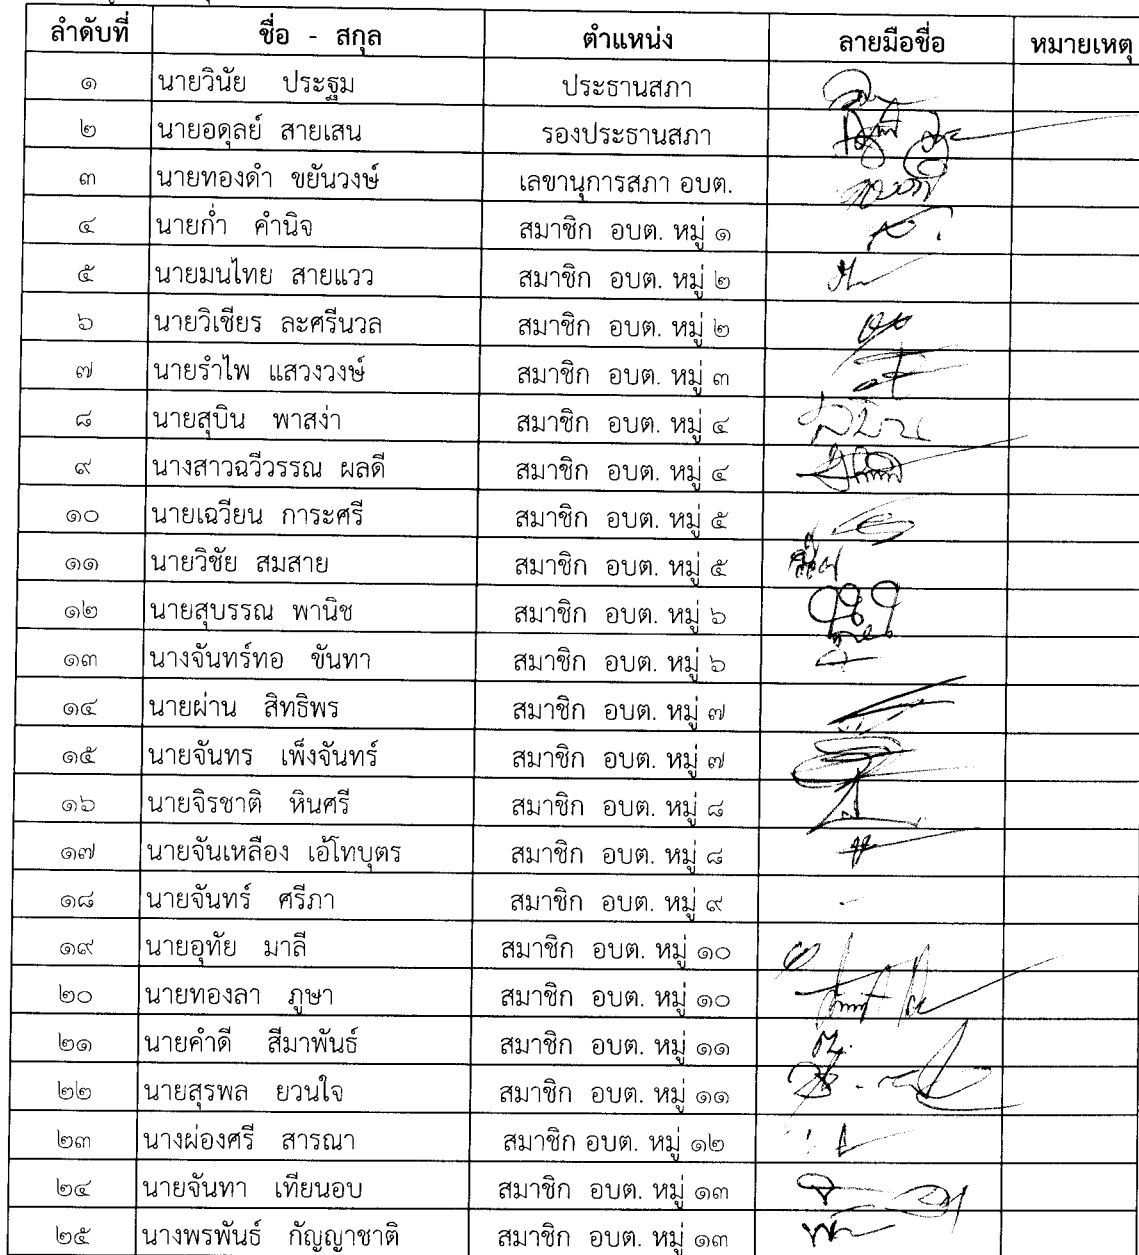 ลำดับที่ ชื่อ - สกุล ตำแหน่ง ลายมือชื่อ หมายเหตุ
๑ นายวินัย ประฐม ประธานสภา
๒ นายอดุลย์ สายเสน รองประธานสภา
๓ นายทองดำ ขยันวงษ์ เลขานุการสภา อบต.
๔ นายก่ำ คำนิจ สมาชิก อบต. หมู่ ๑
๕ นายมนไทย สายแวว สมาชิก อบต. หมู่ ๒
๖ นายวิเชียร ละศรีนวล สมาชิก อบต. หมู่ ๒
๗ นายรำไพ แสวงวงษ์ สมาชิก อบต. หมู่ ๓
๘ นายสุบิน พาสง่า สมาชิก อบต. หมู่ ๔
๙ นางสาวฉวีวรรณ ผลดี สมาชิก อบต. หมู่ ๔
๑๐ นายเฉวียน การะศรี สมาชิก อบต. หมู่ ๕
๑๑ นายวิชัย สมสาย สมาชิก อบต. หมู่ ๕
๑๒ นายสุบรรณ พานิช สมาชิก อบต. หมู่ ๖
๑๓ นางจันทร์ทอ ขันทา สมาชิก อบต. หมู่ ๖
๑๔ นายผ่าน สิทธิพร สมาชิก อบต. หมู่ ๗
๑๕ นายจันทร เพ็งจันทร์ สมาชิก อบต. หมู่ ๗
๑๖ นายจิรชาติ หินศรี สมาชิก อบต. หมู่ ๘
๑๗ นายจันเหลือง เอ้โทบุตร สมาชิก อบต. หมู่ ๘
๑๘ นายจันทร์ ศรีภา สมาชิก อบต. หมู่ ๙
๑๙ นายอุทัย มาลี สมาชิก อบต. หมู่ ๑๐
๒๐ นายทองลา ภูษา สมาชิก อบต. หมู่ ๑๐
๒๑ นายคำดี สีมาพันธ์ สมาชิก อบต. หมู่ ๑๑
๒๒ นายสุรพล ยวนใจ สมาชิก อบต. หมู่ ๑๑
๒๓ นางผ่องศรี สารณา สมาชิก อบต. หมู่ ๑๒
๒๔ นายจันทา เทียนอบ สมาชิก อบต. หมู่ ๑๓
๒๕ นางพรพันธ์ กัญญาชาติ สมาชิก อบต. หมู่ ๑๓